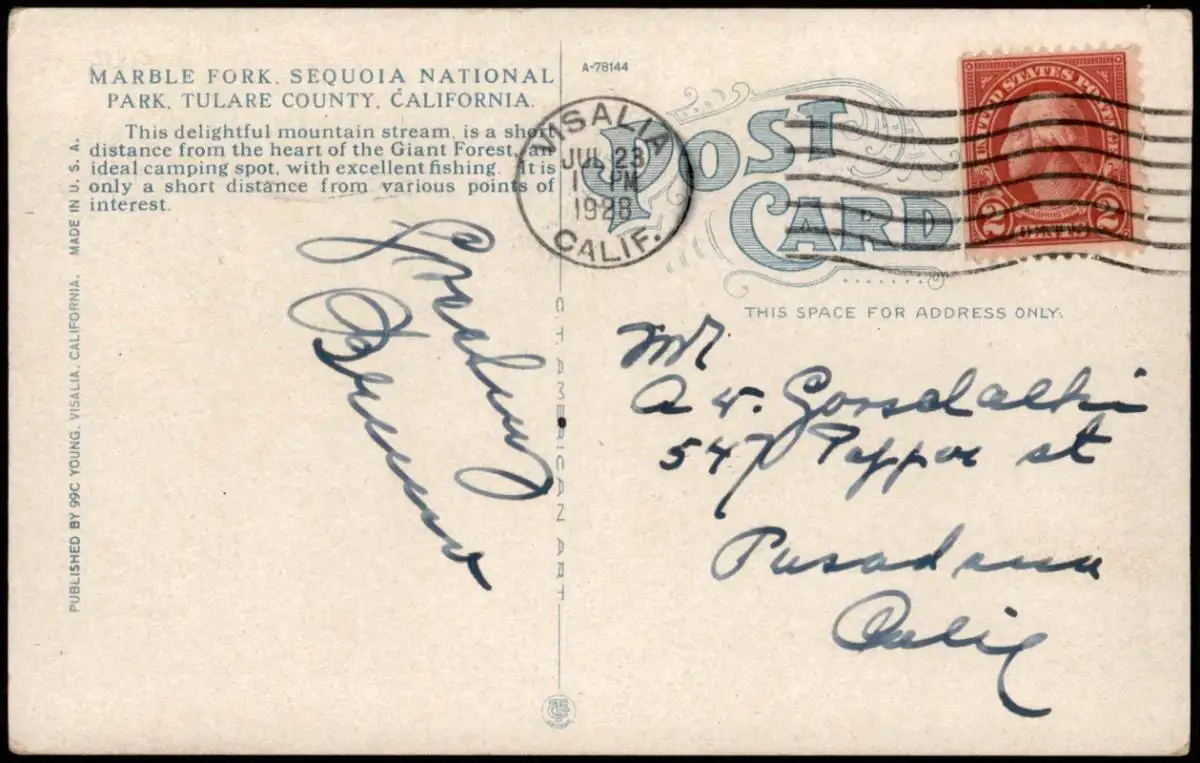 MARBLE FORK, SEQUOIA NATIONAL
PARK, TULARE COUNTY, CALIFORNIA.
This delightful mountain stream, is a short
distance from the heart of the Giant Forest, an
ideal camping spot, with excellent fishing. It is
only a short distance from various points of
interest.
PUBLISHED BY 99C YOUNG, VISALIA, CALIFORNIA. MADE IN U. S. A.
C T AMERICAN ART
A-78144
POST
CARD
VISALIA
JUL 23
PM
1928
CALIF.
UNITED STATES POSTAGE
WASHINGTON
2 CENTS 2
THIS SPACE FOR ADDRESS ONLY.
Mr
A W.
547 Pepper st
Pasadena
Calif